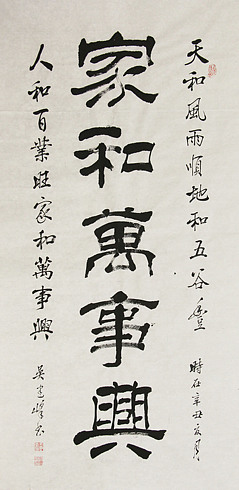 天和風雨順地和五谷豐
時在辛丑亥月
家和萬事興
人和百業旺家和萬事興